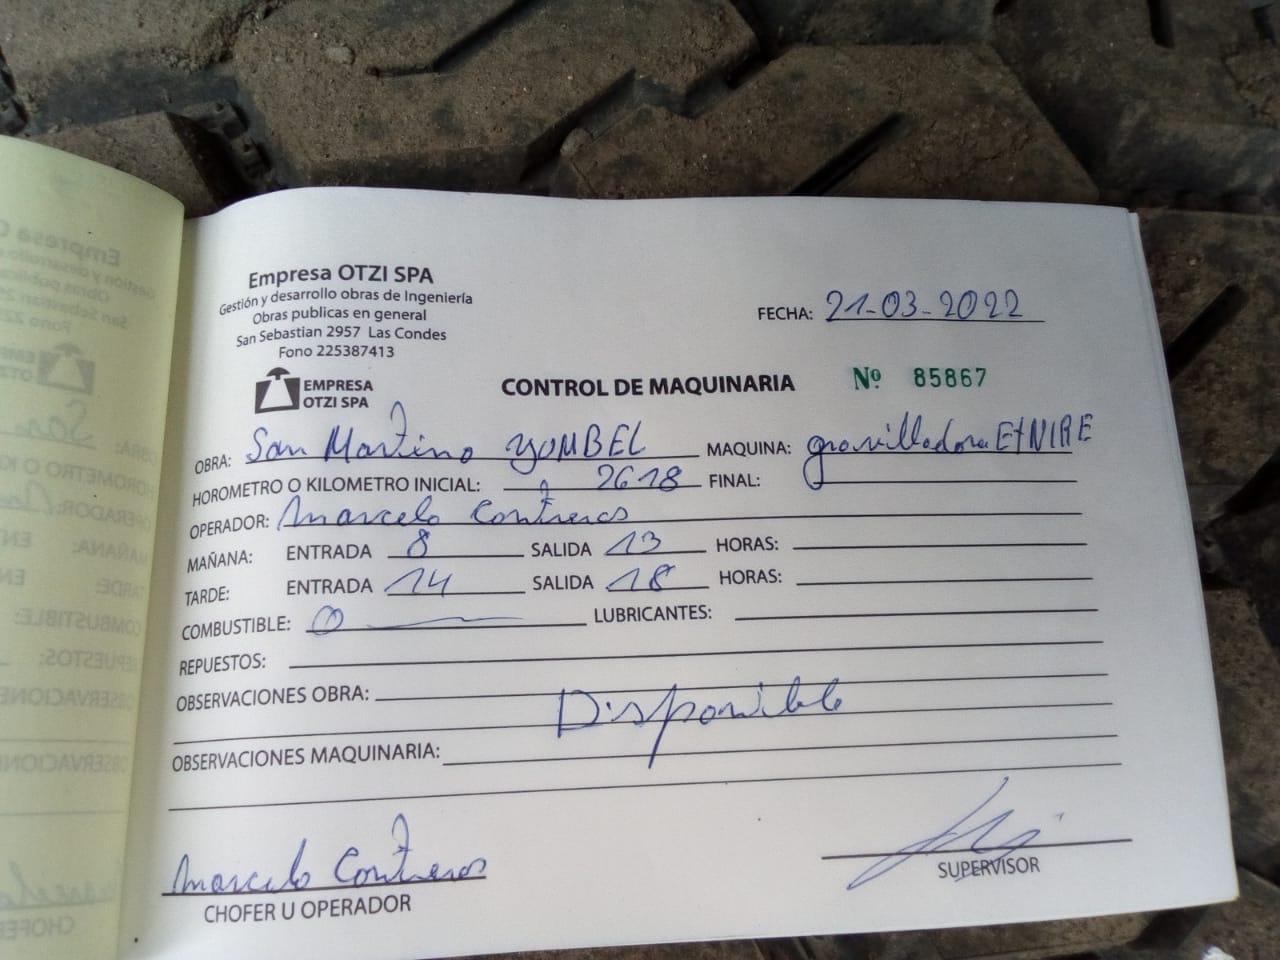 Empresa OTZI SPA
Gestión y desarrollo obras de Ingeniería
Obras publicas en general
San Sebastian 2957 Las Condes
Fono 225387413
FECHA: 21-03-2022
EMPRESA
OTZI SPA
CONTROL DE MAQUINARIA Nº 85867
OBRA: San Martino YUMBEL MAQUINA: gravilladora ETNIRE
HOROMETRO O KILOMETRO INICIAL: 2618 FINAL:
OPERADOR: Marcelo Contreras
MAÑANA: ENTRADA 8 SALIDA 13 HORAS:
TARDE: ENTRADA 14 SALIDA 18 HORAS:
COMBUSTIBLE: 0 LUBRICANTES:
REPUESTOS:
OBSERVACIONES OBRA:
Disponible
OBSERVACIONES MAQUINARIA:
Marcelo Contreras
CHOFER U OPERADOR
SUPERVISOR